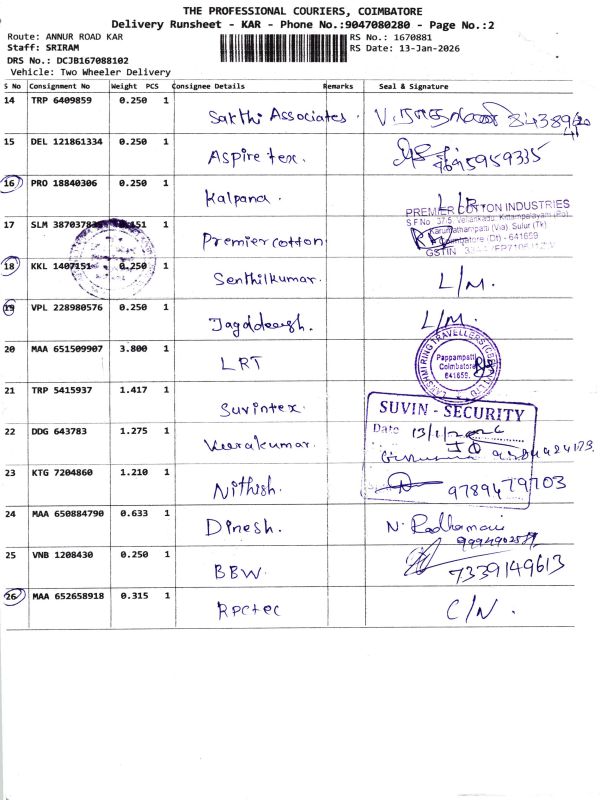 THE PROFESSIONAL COURIERS, COIMBATORE
Delivery Runsheet - KAR - Phone No.:9047080280 - Page No.:2
Route: ANNUR ROAD KAR
RS No.: 1670881
Staff: SRIRAM
RS Date: 13-Jan-2026
DRS No.: DCJB167088102
Vehicle: Two Wheeler Delivery
S No Consignment No Weight PCS Consignee Details Remarks Seal & Signature
14 TRP 6409859 0.250 1 Sakthi Associates.
15 DEL 121861334 0.250 1 Aspire tex. 7695959335
16 PRO 18840306 0.250 1 Kalpana.
PREMIER COTTON INDUSTRIES
17 SLM 1 Premier cotton
Coimbatore (Dt) - 641659
GSTIN
18 KKL 1407151 0.250 1 Senthilkumar. L/M.
19 VPL 228980576 0.250 1 L/M.
20 MAA 651509907 3.800 1 LRT
LAKSHMI RING TRAVELLERS
Pappampatti
Coimbatore
641659.
21 TRP 5415937 1.417 1 Suvintex.
SUVIN - SECURITY
Date 13/1/2026
22 DDG 643783 1.275 1 Veerakumar.
23 KTG 7204860 1.210 1 Nithish. 9789479703
24 MAA 650884790 0.633 1 Dinesh. N. Radhamani
25 VNB 1208430 0.250 1 BBW. 7339149613
26 MAA 652658918 0.315 1 Rpctec C/N.